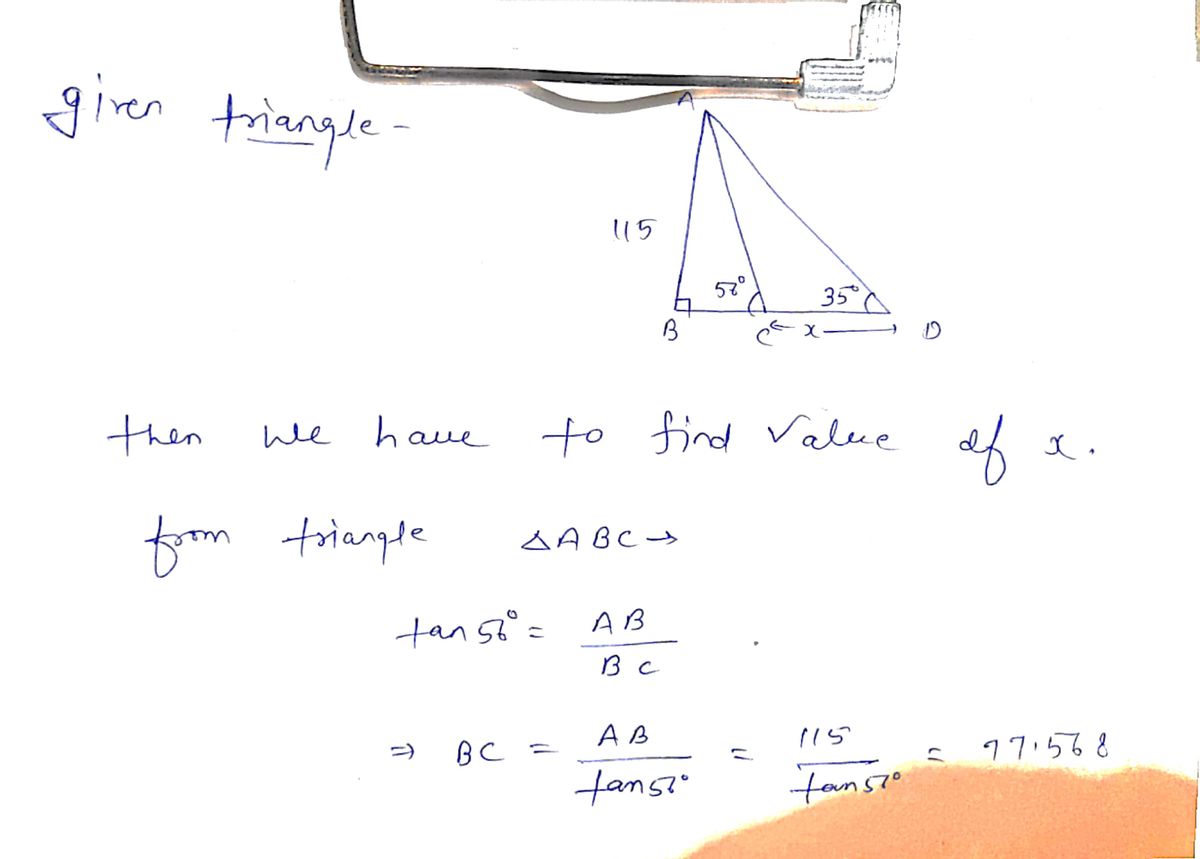 given triangle -
A
115
56° 35°
B C ← x → D
then we have to find value of x.
from triangle △ABC →
tan 56° = AB / BC
⇒ BC = AB / tan 56° = 115 / tan 56° = 77.568